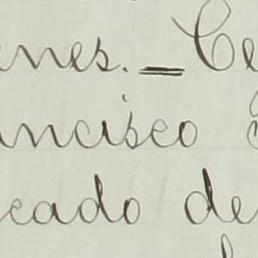 nes. = Ce
ancisco
cado de